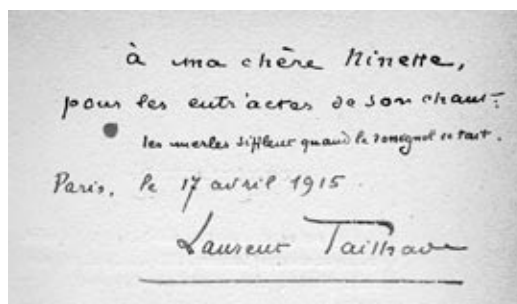 à ma chère Ninette,
pour les entr'actes de son chant :
les merles sifflent quand le rossignol se tait.
Paris, le 17 avril 1915
Laurent Tailhade